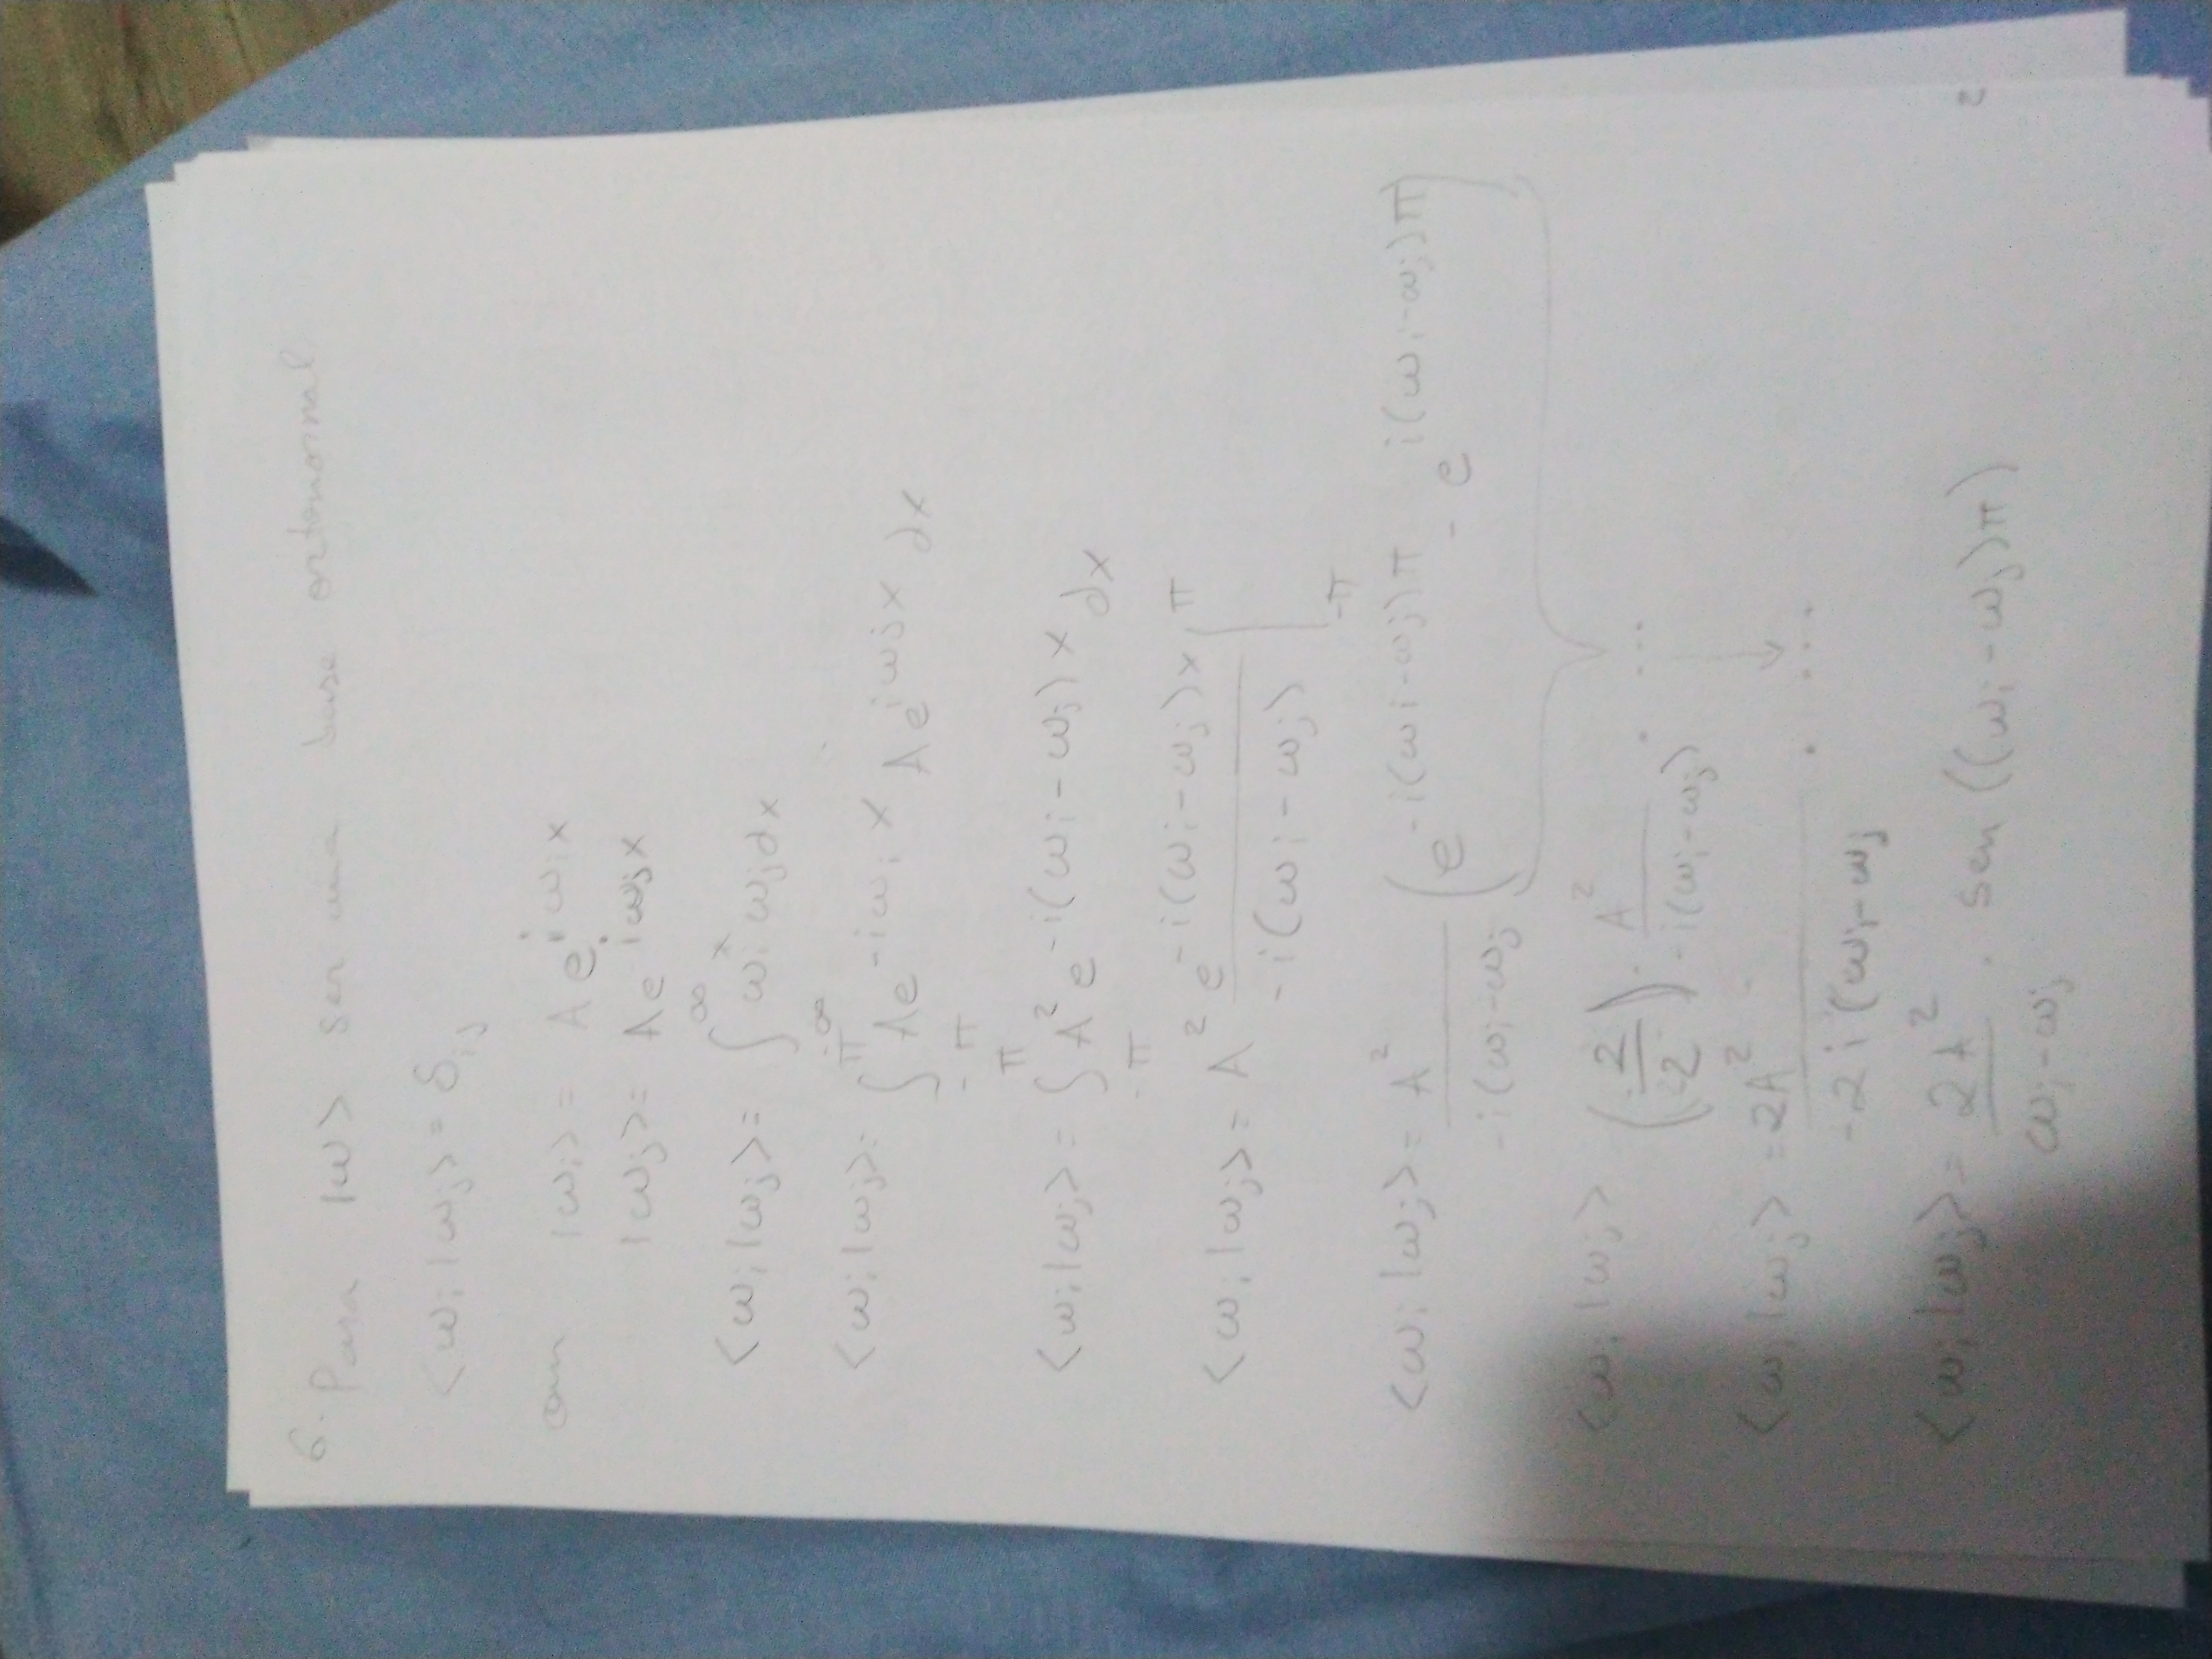 6. Para |ω> ser uma base ortonormal
<ωi|ωj> = δij
com |ωi> = A e^{iωix}
|ωj> = Ae^{iωjx}
<ωi|ωj> = ∫_{-∞}^{∞} ωi* ωj dx
<ωi|ωj> = ∫_{-π}^{π} Ae^{-iωix} Ae^{iωjx} dx
<ωi|ωj> = ∫_{-π}^{π} A² e^{-i(ωi-ωj)x} dx
<ωi|ωj> = A² e^{-i(ωi-ωj)x} / -i(ωi-ωj) |_{-π}^{π}
<ωi|ωj> = A² / -i(ωi-ωj (e^{-i(ωi-ωj)π} - e^{i(ωi-ωj)π})
<ωi|ωj> (2/2) · A² / -i(ωi-ωj) · ...
<ωi|ωj> = 2A² / -2i(ωi-ωj · ...
<ωi|ωj> = 2A² / ωi-ωj · sen((ωi-ωj)π)